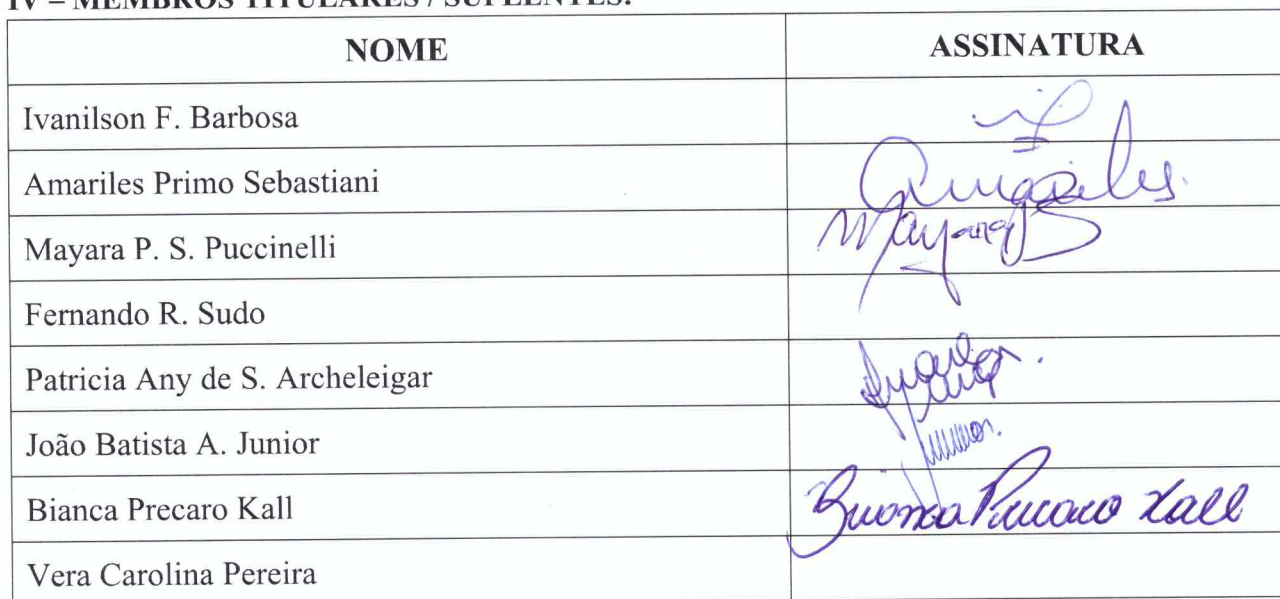 IV – MEMBROS TITULARES / SUPLENTES:
NOME ASSINATURA
Ivanilson F. Barbosa
Amariles Primo Sebastiani Amariles
Mayara P. S. Puccinelli Mayara
Fernando R. Sudo
Patricia Any de S. Archeleigar
João Batista A. Junior Junior.
Bianca Precaro Kall Bianca Precaro Kall
Vera Carolina Pereira